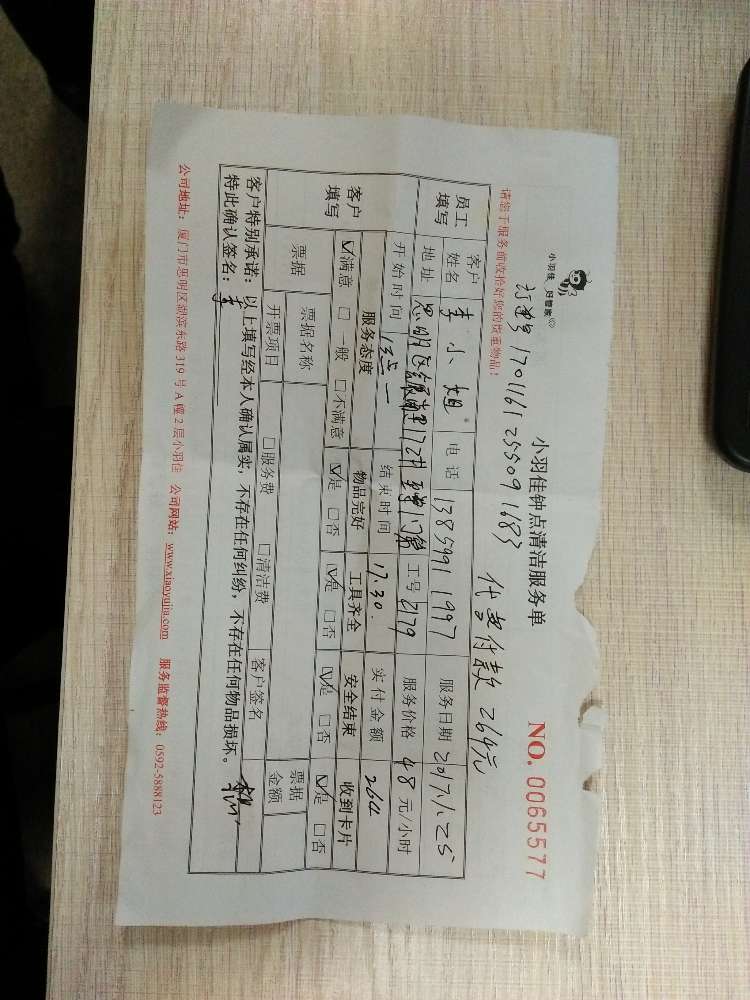 小羽佳 好管家
小羽佳钟点清洁服务单
NO. 0065577
1701161255091683 代支付款 264元
请您于服务前收拾好您的贵重物品!
员工填写 客户姓名 李小姐 电话 13859911997 服务日期 2017.1.25
地址 思明区 172 工号 2179 服务价格 48元/小时
开始时间 结束时间 17.30. 实付金额 264
客户填写 服务态度 物品完好 工具齐全 安全结束 收到卡片
☑满意 □一般 □不满意 ☑是 □否 ☑是 □否 ☑是 □否 ☑是 □否
票据 票据名称 客户签名 票据金额
开票项目 □服务费 □清洁费
客户特别承诺:以上填写经本人确认属实,不存在任何纠纷,不存在任何物品损坏。
特此确认签名:李
公司地址:厦门市思明区湖滨东路319号A幢2层小羽佳 公司网站:www.xiaoyujia.com 服务监督热线:0592-5888123